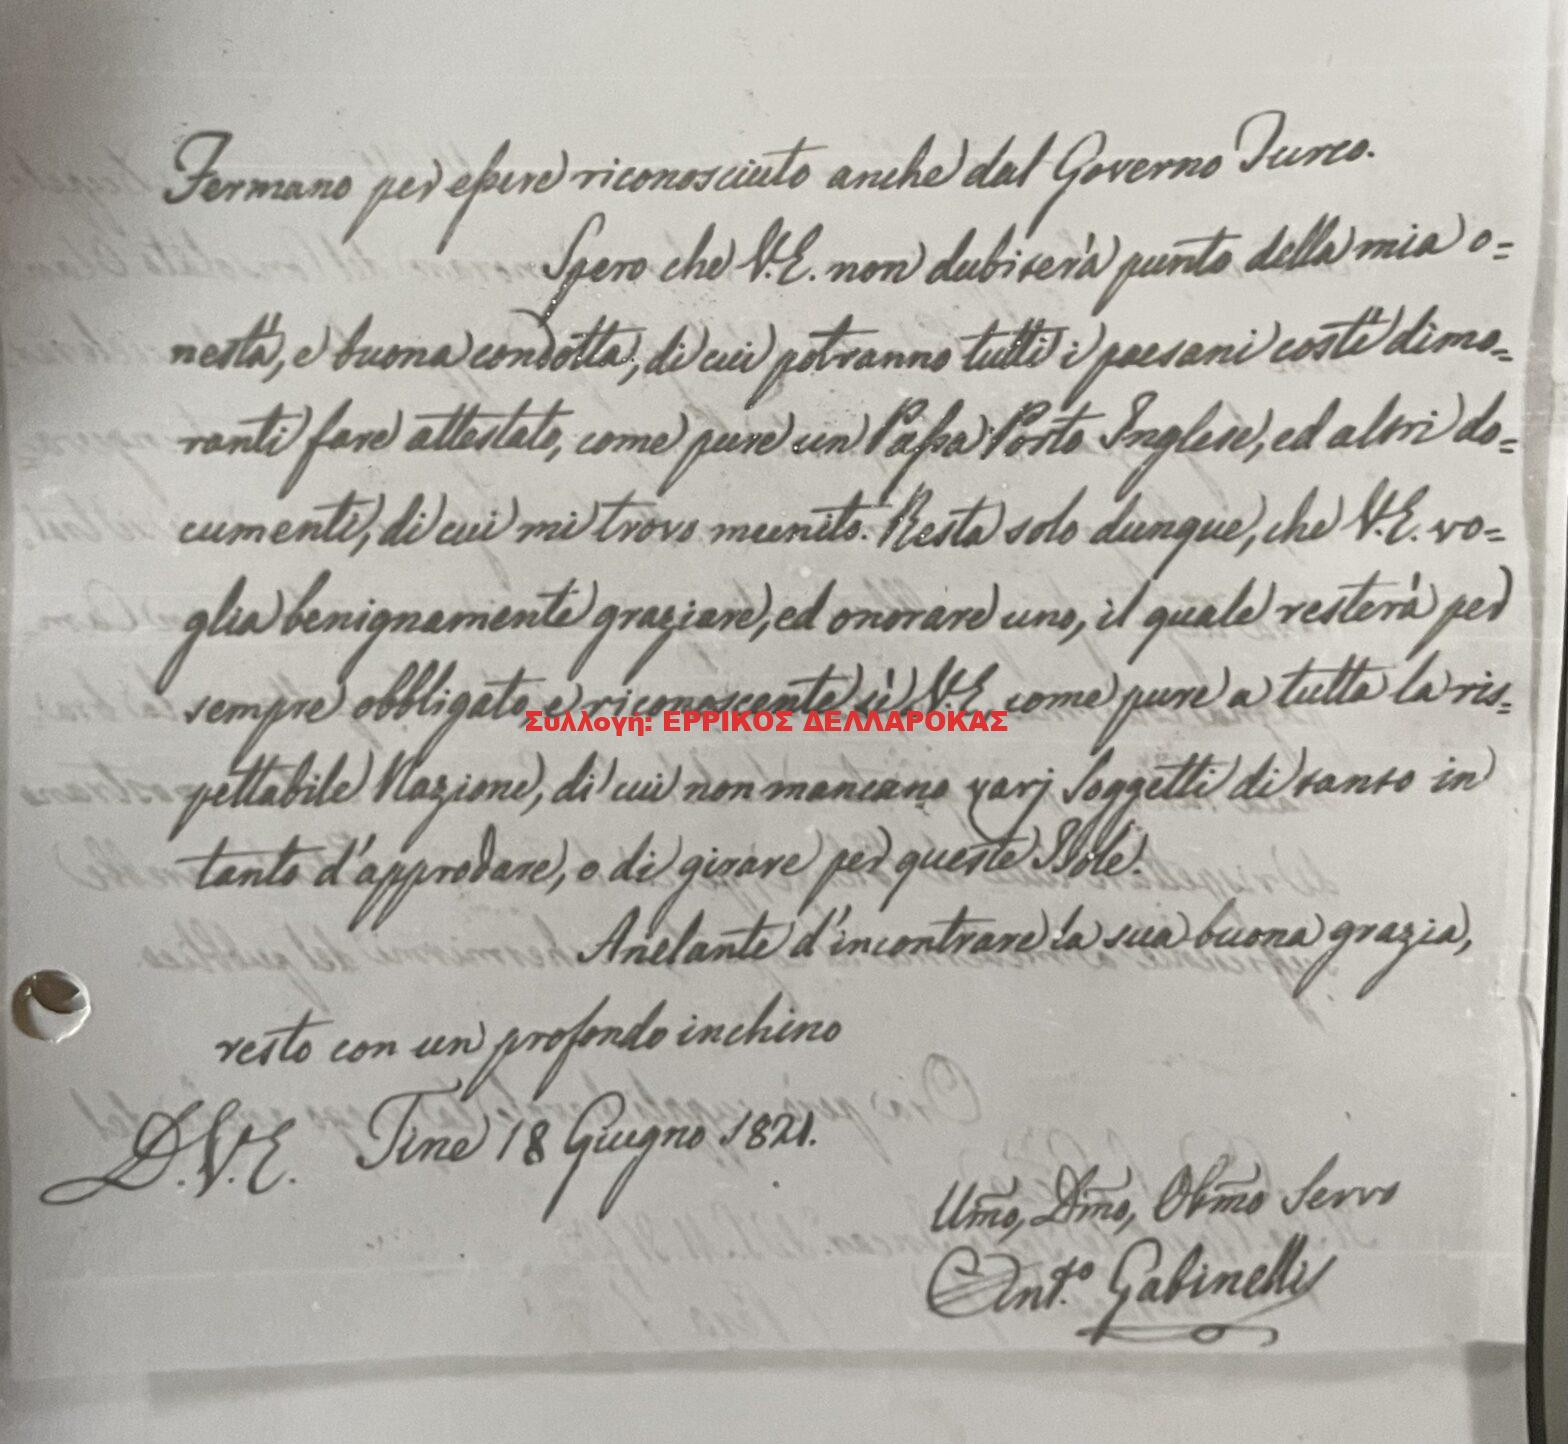 Fermano per essere riconosciuto anche dal Governo Turco.
Spero che V.E. non dubiterà punto della mia o=
nestà, e buona condotta, di cui potranno tutti i paesani costì dimo=
ranti fare attestato, come pure un Passa Porto Inglese, ed altri do=
cumenti, di cui mi trovo munito. Resta solo dunque, che V.E. vo=
glia benignamente graziare, ed onorare uno, il quale resterà per
sempre obbligato, e riconoscente sì V.E. come pure a tutta la ris=
Συλλογή: ΕΡΡΙΚΟΣ ΔΕΛΛΑΡΟΚΑΣ
pettabile Nazione, di cui non mancano varj Soggetti di tanto in
tanto d'approdare, o di girare per queste Isole.
Anelante d'incontrare la sua buona grazia,
resto con un profondo inchino
D.V.E. Tine 18 Giugno 1821.
Umo, Dmo, Obmo Servo
Anto. Gabinelli